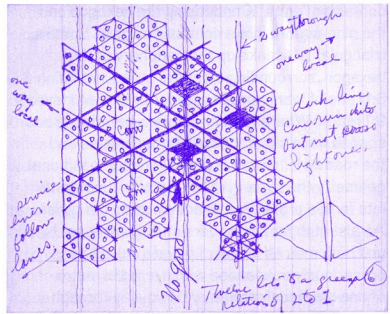 2 way through
one way
local
one
way
local
dark line
can run into
but not cross
light ones.
service
lines
follow
lanes.
No good
Twelve lots to a green 6
relation of 2 to 1